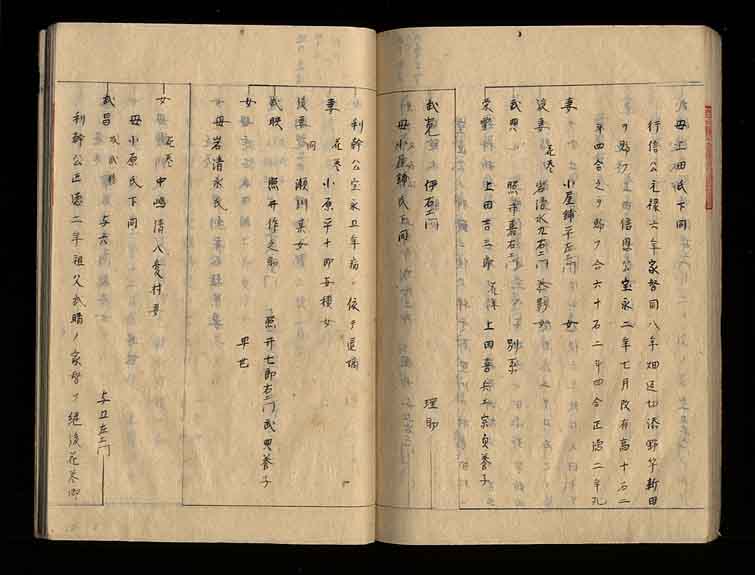 母上田氏下同
行信公元禄六年家督同八年畑返切添野竿新田
ヲ加フ 信恩公宝永二年七月改有高十石二
斗四合之ヲ加フ合六十石二斗四合正徳二年九
妻 小屋鋪平左エ門 女
後妻 花巻 岩清水九右エ門養妹
武典 照井嘉右エ門 別系
栄 上田吉三郎 花 上田喜兵エ宗貞養子
武 伊右エ門 理助
母小屋鋪氏下同
利幹公宝永五年病ニ依テ退
妻 花巻 小原平十郎 女
後妻 同 瀬川某女
武映 照井作之助 照井七郎右エ門武典養子
女 早世
母岩清水氏
女 花巻 中嶋清八愛村妻
母小原氏下同
武昌 与六 与五左エ門
利幹公正徳二年祖父武晴ノ家督ヲ継後花巻御